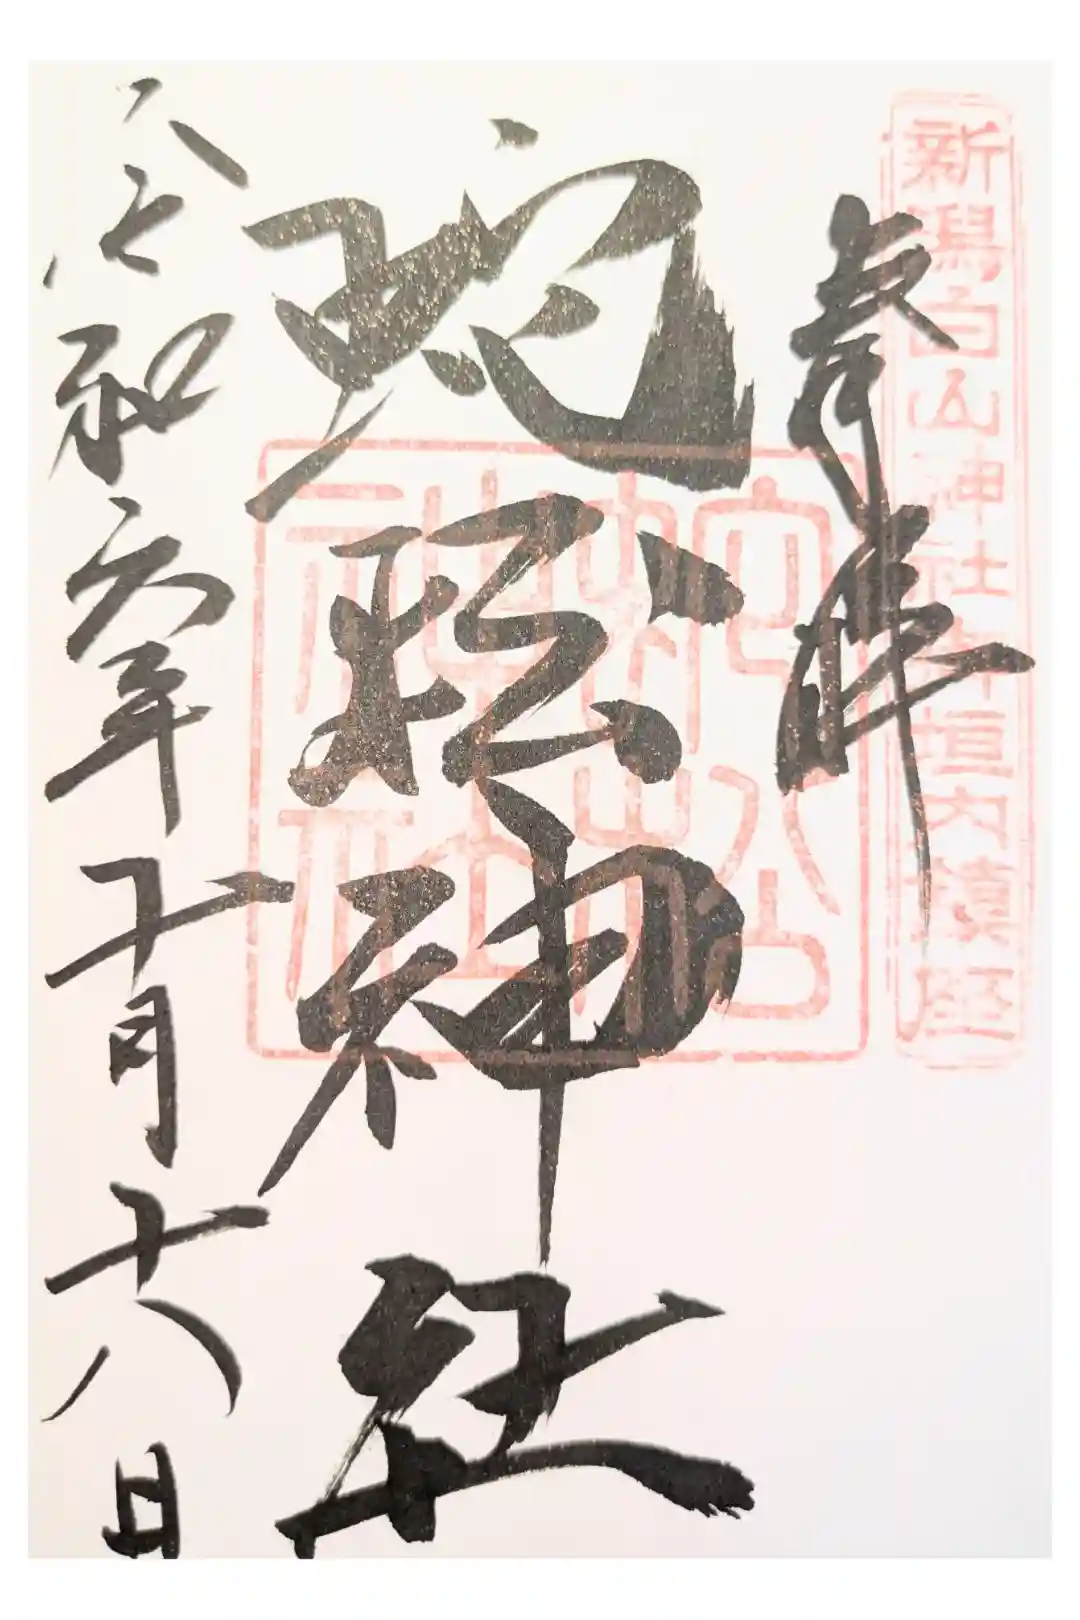 新潟白山神社御垣内鎮座
奉拝
蛇松神社
蛇松神社
令和六年十月十八日